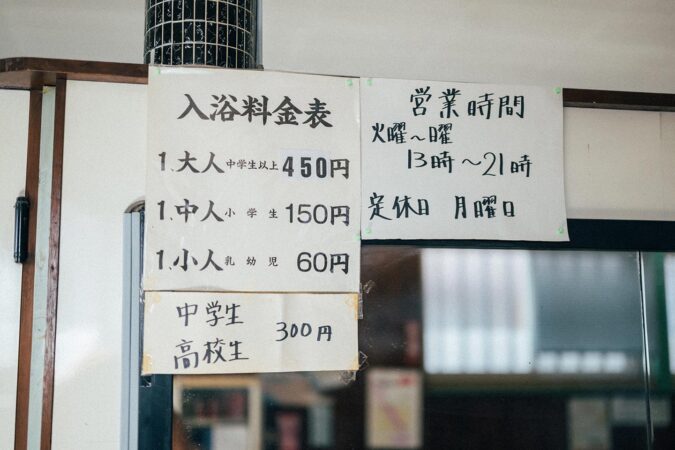 入浴料金表
1.大人 中学生以上 450円
1.中人 小学生 150円
1.小人 乳幼児 60円
中学生
高校生 300円
営業時間
火曜～日曜
13時～21時
定休日 月曜日